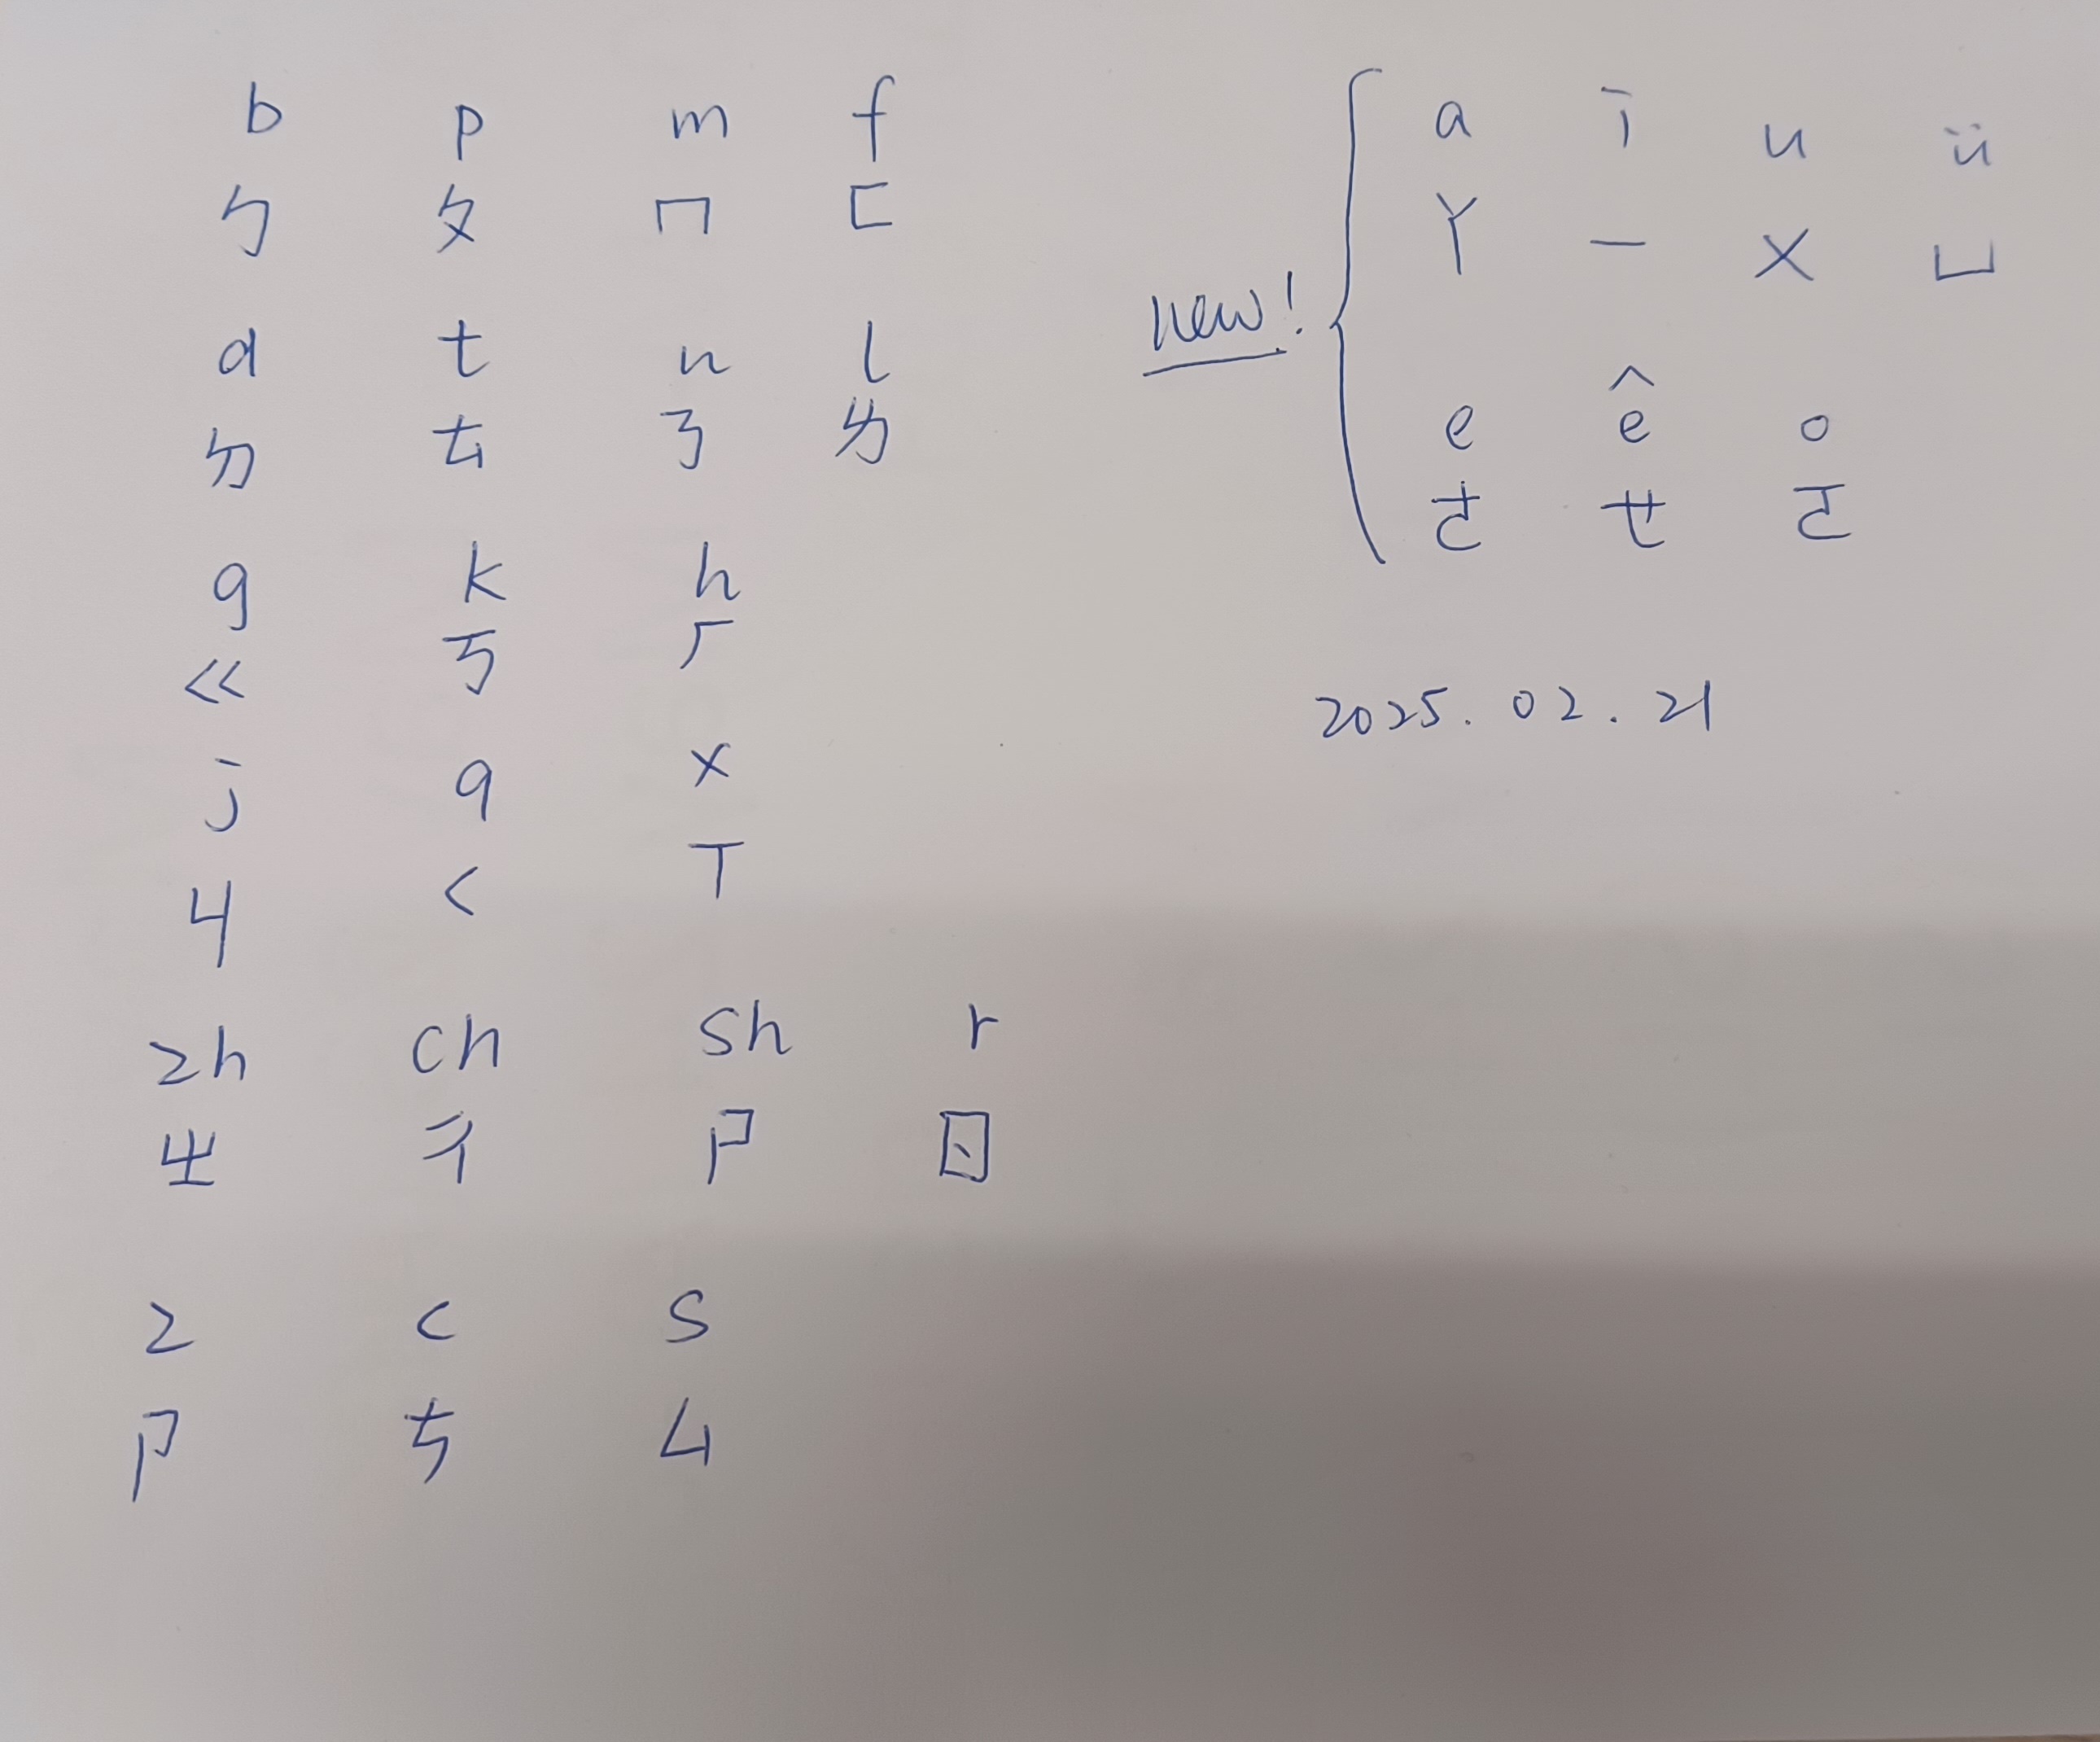 b p m f
ㄅ ㄆ ㄇ ㄈ
d t n l
ㄉ ㄊ ㄋ ㄌ
g k h
ㄍ ㄎ ㄏ
j q x
ㄐ ㄑ ㄒ
zh ch sh r
ㄓ ㄔ ㄕ ㄖ
z c s
ㄗ ㄘ ㄙ
new!
a i u ü
ㄚ ㄧ ㄨ ㄩ
e ê o
ㄜ ㄝ ㄛ
2025.02.21